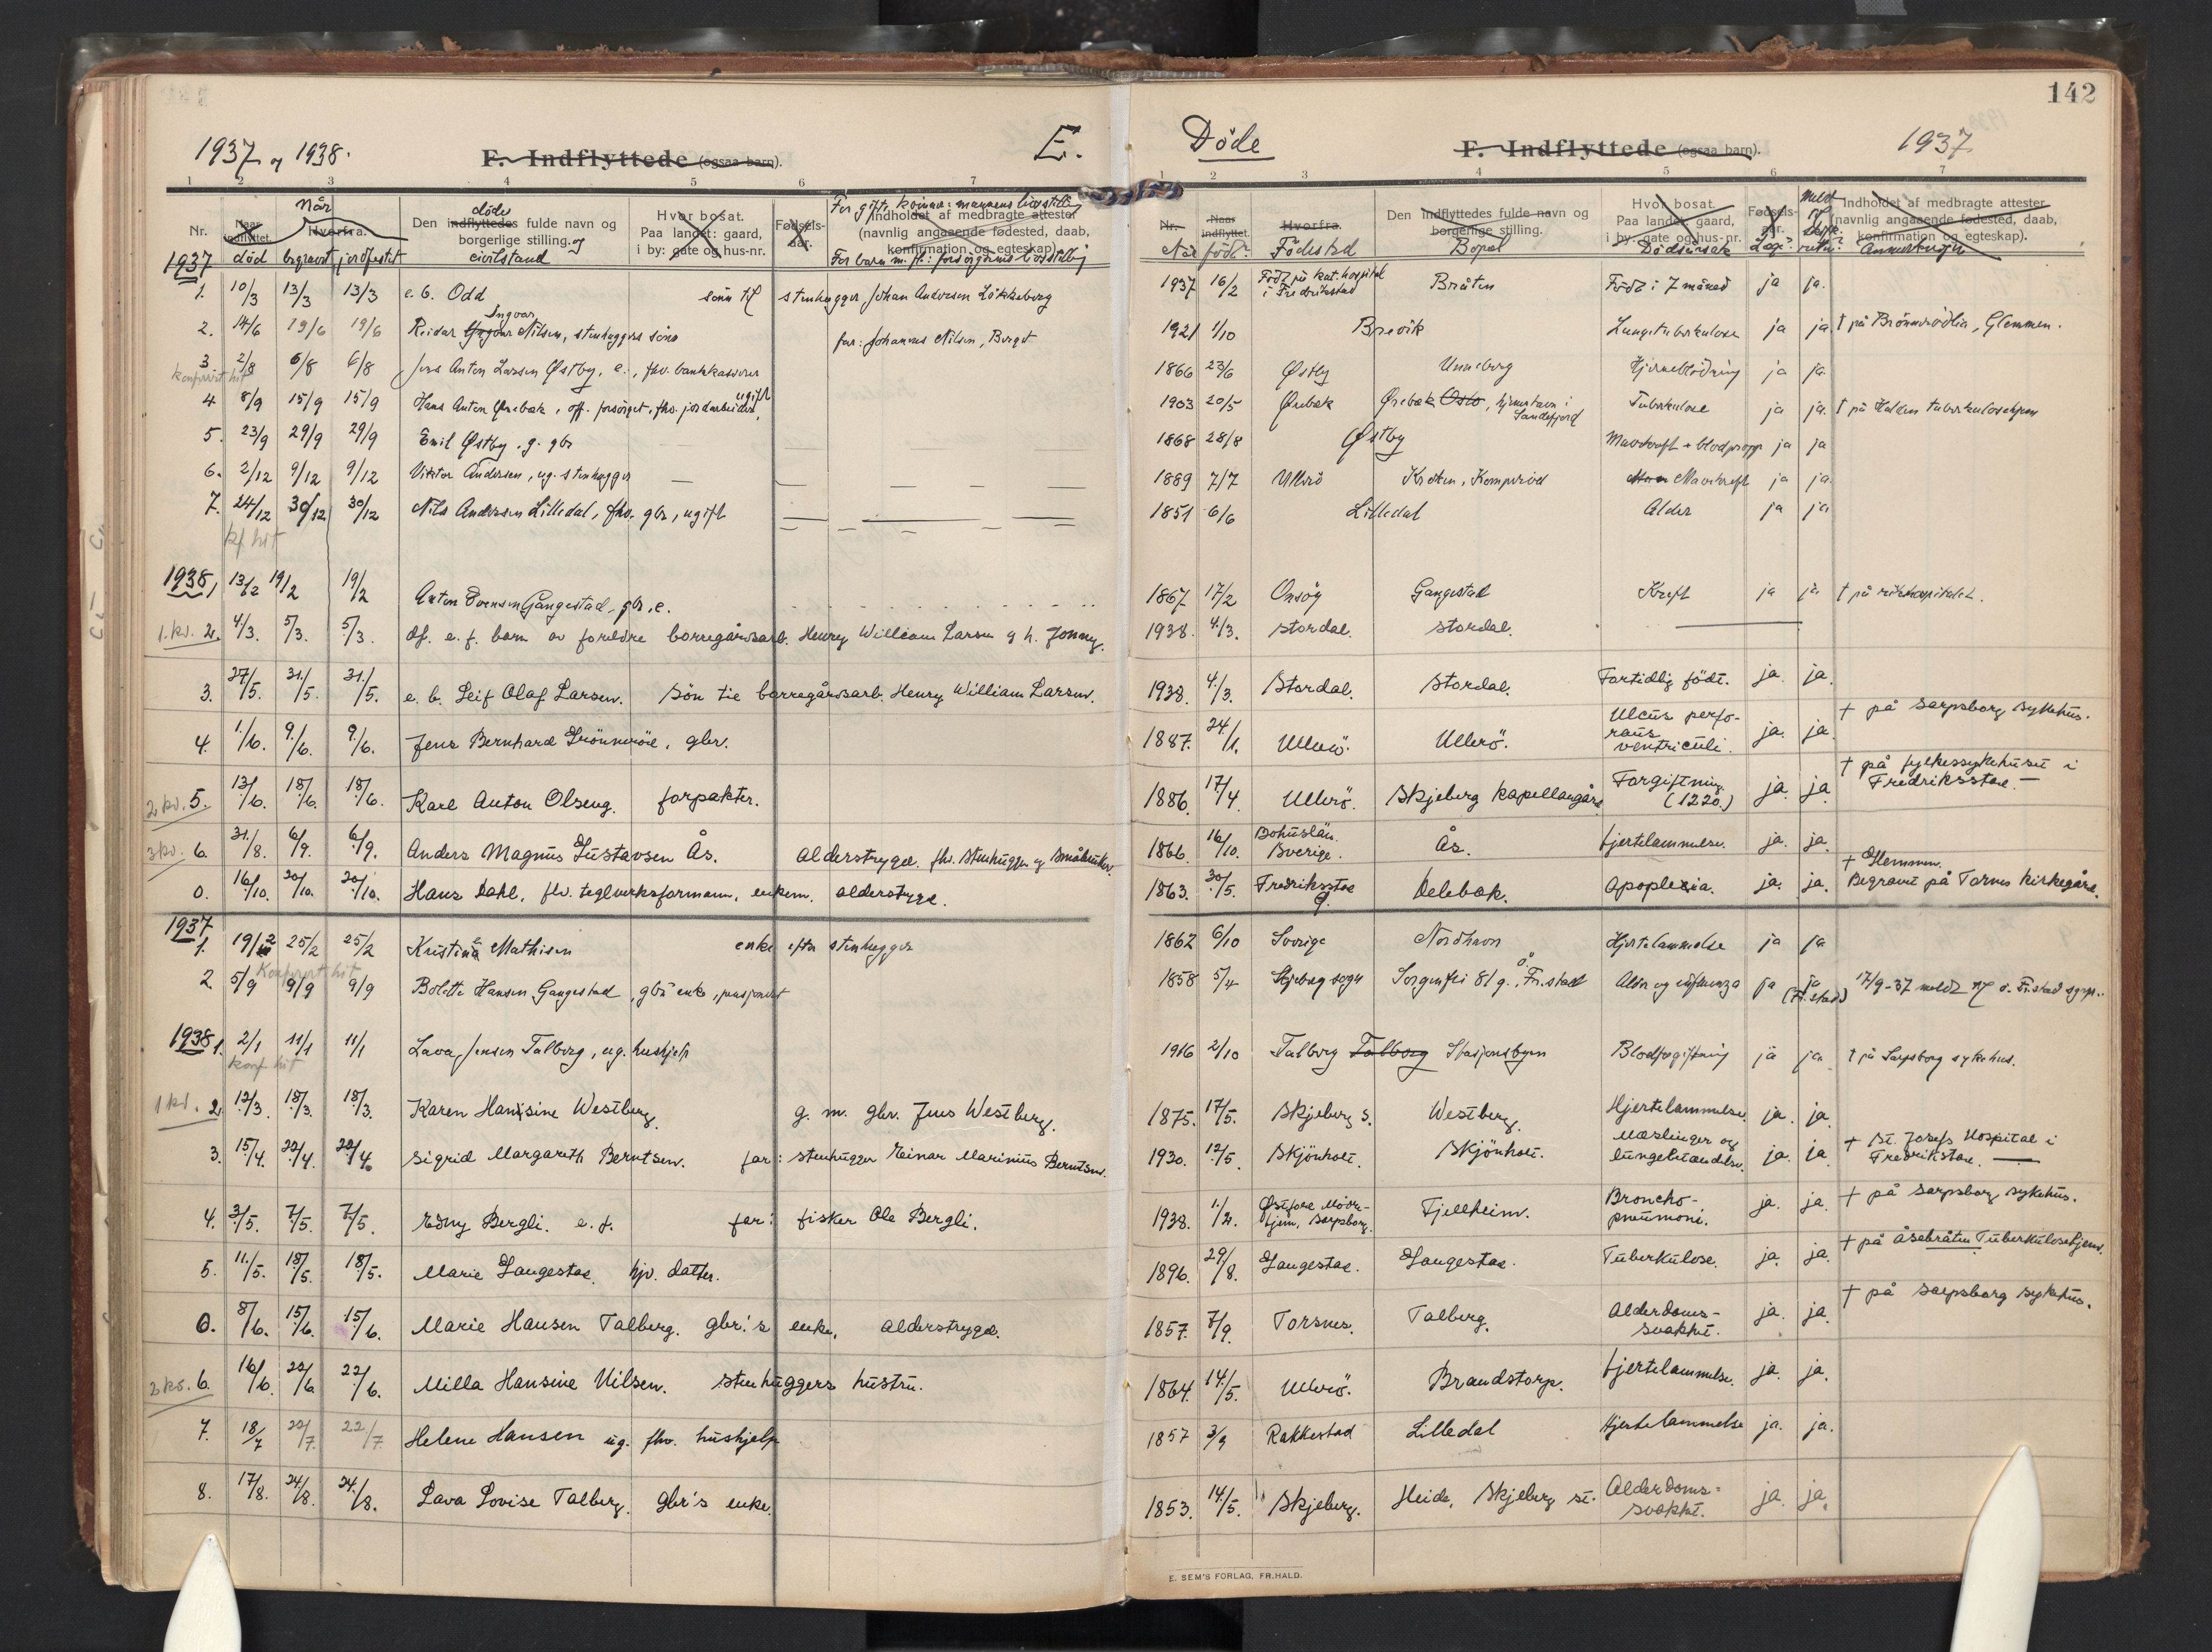 142
1937 og 1938.
F. Indflyttede (ogsaa barn).
E.
Døde
F. Indflyttede (ogsaa barn).
1937
1 2 3 4 5 6 7
1 2 3 4 5 6 7
Nr. Naar indflyttet. Når Hvorfra. død begravet jordfestet
Den indflyttedes døde fulde navn og borgerlige stilling. og civilstand
Hvor bosat. Paa landet: gaard, i by: gate og hus-nr.
Fødsels-aar.
For gifte kvinner: mannens livsstilling
Indholdet af medbragte attester (navnlig angaaende fødested, daab, konfirmation og egteskap).
For barn m. fl: forsørgerens livsstilling
Nr. Naar indflyttet. Når født? Hvorfra. Fødested
Den indflyttedes fulde navn og borgerlige stilling. Bopel
Hvor bosat. Paa landet: gaard, i by: gate og hus-nr. Dødsårsak
Fødsels-aar. Læge?
Meld. til skifteretten?
Indholdet af medbragte attester (navnlig angaaende fødested, daab, konfirmation og egteskap). Anmerkninger
1937
1. 10/3 13/3 13/3 e. b. Odd sønn til stenhugger Johan Andersen Løkkeberg 1937 16/2 Født på kat. hospital i Fredrikstad Bråten Født i 7 måned ja ja.
2. 14/6 19/6 19/6 Reidar Ingvar Nilsen, stenhuggers sønn far: Johannes Nilsen, Berget 1921 1/10 Brevik Lungetuberkulose ja ja. † på Brønnerødlia, Glemmen.
3. 2/8 6/8 6/8 Jens Anton Larsen Østby, e., fhv. bankkasserer 1866 23/6 Østby Unneberg Hjerneblødning ja ja.
konfrert hit
4 8/9 15/9 15/9 Hans Anton Ørebæk, off. forsørget, fhv. jordarbeider, ugift 1903 20/5 Ørebæk Ørebæk Oslo, hjemstavn i Sandefjord Tuberkulose ja ja. † på Halden tuberkulosehjem
5. 23/9 29/9 29/9 Emil Østby, g. gbr 1868 28/8 Østby Mavekreft + blodpropp ja ja
6. 2/12 9/12 9/12 Viktor Andersen, ug. stenhugger 1889 7/7 Ullerø Kroken, Kamperød Mavekreft ja ja.
7. 24/12 30/12 30/12 Nils Andersen Lilledal, fhv. gbr, ugift 1851 6/6 Lilledal Alder ja ja
kf. hit
1938
1 13/2 19/2 19/2 Anton Svensen Gangestad, gbr, e. 1867 17/2 Onsøy Gangestad Kreft ja ja † på rikshospitalet.
1. kv. 2. 4/3. 5/3. 5/3. df. e. f. barn av foreldre borregårdsarb. Henry William Larsen og h. Jonny. 1938. 4/3. Stordal. Stordal.
3. 27/5. 31/5. 31/5. e. b. Leif Olaf Larsen. Søn til borregårdsarb. Henry William Larsen. 1938. 4/3. Stordal. Stordal. Fortidlig født. ja. ja.
4. 1/6. 9/6. 9/6. Jens Bernhard Grønnerød, gbr. 1887. 24/1. Ullerö. Ullerö. Ulcus perforans ventriculi. ja. ja. † på Sarpsborg sykehus.
2. kv. 5. 13/6. 18/6. 18/6. Karl Anton Olseng. forpakter. 1886. 17/4. Ullerö. Skjeberg kapellangård Forgiftning. (1220.) ja. ja. † på fylkessykehuset i Fredriksstad —
3 kv. 6. 31/8. 6/9. 6/9. Anders Magnus Gustavsen Ås. alderstrygd. fhv. stenhugger og småbruker. 1866. 16/10. Bohuslän. Sverige. Ås. hjertelammelse. ja. ja.
0. 16/10. 20/10. 20/10. Hans Dahl, fhv. teglverksformann, enkem. alderstrygd. 1863. 30/5. Fredriksstad Delebæk. Apoplexia. ja. ja. † Glemmen. Begravet på Torsnes kirkegård.
1937
1. 19/2 25/2 25/2 Kristina Mathisen enke efter stenhugger 1862 6/10 Sverige Nordhavn Hjertelammelse ja ja
Konfrert hit
2 5/9 9/9 9/9 Bolette Hansen Gangestad, gbr enke, pensjonert 1858 5/4 Skjeberg sogn Sorgenfri 81 g., Ö. Fr.stad Alder og influenza ja ja (Fr.stad) 17/9-37 meldt til ö. Fr.stad sgpr.
1938
1. 2/1 11/1 11/1 Lava Jensen Talberg, ug. hushjelp 1916 2/10 Talberg Talberg Stasjonsbyen Blodforgiftning ja ja † på Sarpsborg sykehus.
konf hit
1 kv. 2. 12/3. 18/3. 18/3. Karen Hansine Westberg. g. m. gbr. Jens Westberg. 1875. 17/5. Skjeberg S. Westberg. Hjertelammelse. ja. ja.
3. 15/4. 22/4. 22/4. Sigrid Margareth Berntsen. far: stenhugger Einar Marinius Berntsen. 1930. 12/5. Skjönholt. Skjönholt. Meslinger og lungebetændelse. ja. ja. † St. Josefs Hospital i Fredrikstad. —
4. 3/5. 7/5. 7/5. Edny Bergli. e. f. far: fisker Ole Bergli. 1938. 1/2. Østfold Mödrehjem, Sarpsborg. Fjellheim. Broncho-pneumoni. ja. ja. † på Sarpsborg sykehus.
5. 11/5. 18/5. 18/5. Marie Gangestad. hjv. datter. 1896. 29/8. Gangestad. Gangestad. Tuberkulose. ja. ja. † på Åsebråten Tuberkulosehjem.
0. 8/6. 15/6. 15/6. Marie Hansen Talberg. gbr.'s enke, alderstrygd. 1857. 7/9. Torsnes. Talberg. Alderdoms-svakhet. ja. ja. † på Sarpsborg sykehus.
2 kv. 6. 16/6. 22/6. 22/6. Milla Hansine Nilsen. Stenhuggers hustru. 1864. 14/5. Ullerö. Brandstorp. hjertelammelse. ja. ja.
7. 18/7 22/7. 22/7. Helene Hansen ug. fhv. hushjelp 1857 3/9 Rakkestad Lilledal Hjertelammelse ja. ja.
8. 17/8. 24/8. 24/8. Lava Lovise Talberg. gbr's enke. 1853. 14/5. Skjeberg. Heide, Skjeberg st. Alderdoms-svakhet. ja. ja.
E. SEM'S FORLAG, FR.HALD.